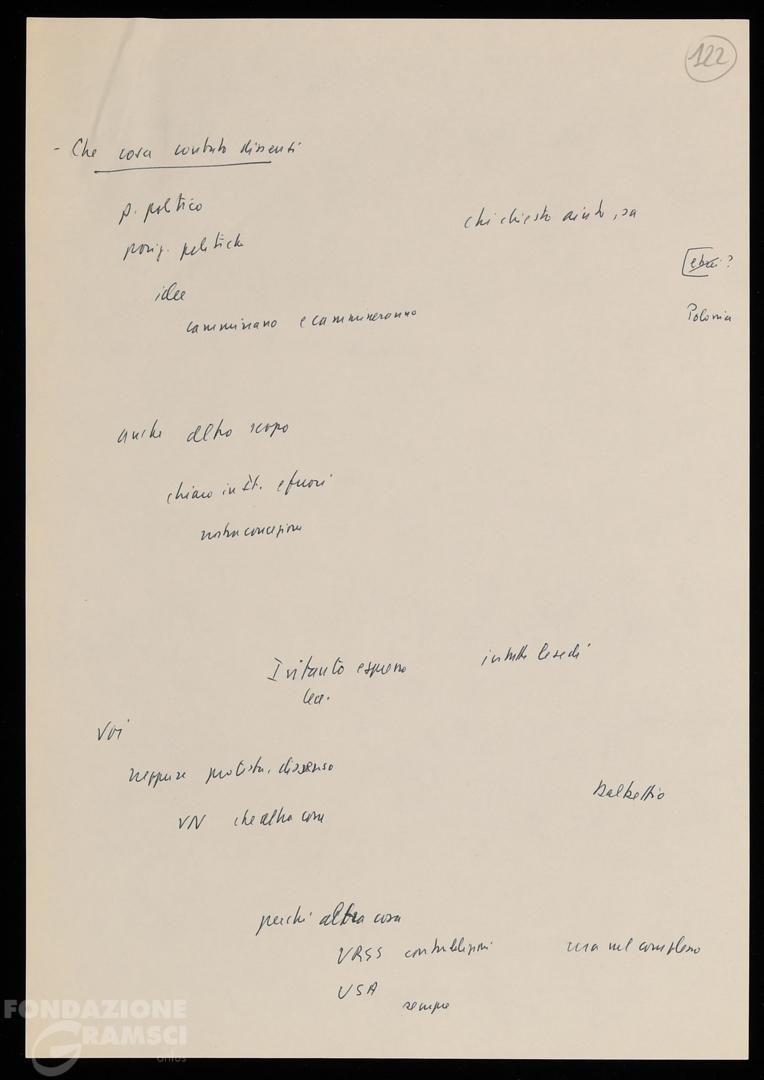 122
- Che cosa contato dissensi
p. politico
posiz. politiche
chi chiesto aiuto, sa
idee
ebrei ?
camminano e cammineranno
Polonia
anche altro scopo
chiaro in It. e fuori
nostra concezione
Intanto espresso
in tutte le sedi
voi
neppure protesta, dissenso
Balbettio
VN che altra cosa
perché altra cosa
URSS contraddizioni
ma nel complesso
USA
sempre
FONDAZIONE
GRAMSCI
onlus